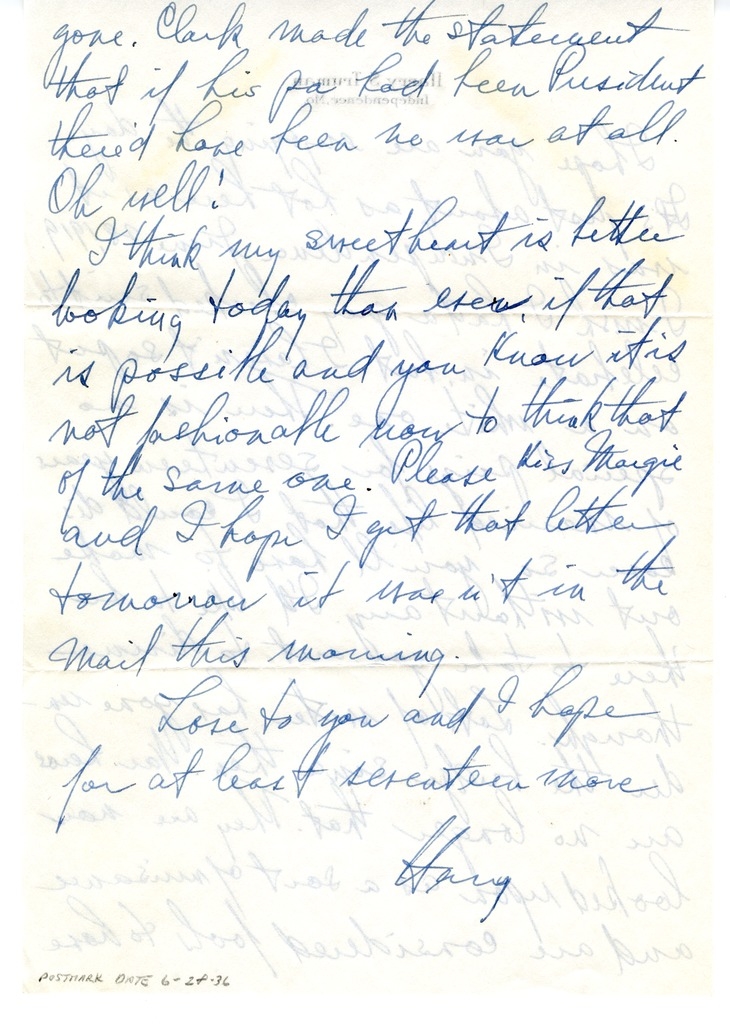 gone. Clark made the statement
that if his pa had been President
there'd have been no war at all.
Oh well!
I think my sweetheart is better
looking today than ever, if that
is possible and you know it is
not fashionable now to think that
of the same one. Please kiss Margie
and I hope I get that letter
tomorrow it was n't in the
mail this morning.
Love to you and I hope
for at least seventeen more
Harry
POSTMARK DATE 6-28-36